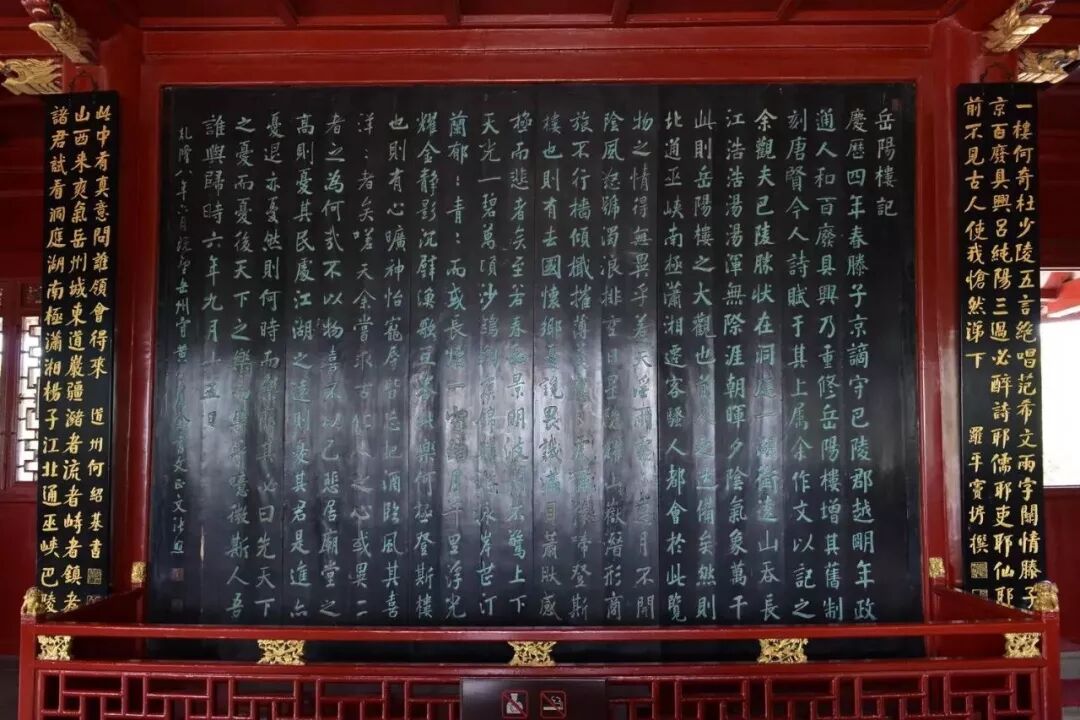 一樓何奇杜少陵五言絶唱范希文兩字關情滕子
京百廢具興呂純陽三過必醉詩耶儒耶吏耶仙耶
前不見古人使我愴然涕下 羅平竇垿撰
岳陽樓記
慶歷四年春滕子京謫守巴陵郡越明年政
通人和百廢具興乃重修岳陽樓增其舊制
刻唐賢今人詩賦于其上属余作文以記之
余觀夫巴陵勝状在洞庭一湖銜遠山吞長
江浩浩湯湯渾無際涯朝暉夕陰氣象萬千
此則岳陽樓之大觀也前人之述備矣然則
北道巫峡南極瀟湘遷客騷人都會於此覽
物之情得無異乎若夫淫雨霏霏連月不開
陰風怒號濁浪排空日星隱耀山嶽潛形商
旅不行檣傾檝摧薄暮冥冥虎嘯猿啼登斯
樓也則有去國懷鄉憂讒畏譏滿目蕭然感
極而悲者矣至若春和景明波瀾不驚上下
天光一碧萬頃沙鷗翔集錦鱗游泳岸芷汀
蘭郁：青：而或長煙一空皓月千里浮光
耀金靜影沉璧漁歌互答此樂何極登斯樓
也則有心曠神怡寵辱皆忘把酒臨風其喜
洋：者矣嗟夫余嘗求古仁人之心或異二
者之為何哉不以物喜不以己悲居廟堂之
高則憂其民處江湖之遠則憂其君是進亦
憂退亦憂然則何時而樂耶其必曰先天下
之憂而憂後天下之樂而樂歟噫微斯人吾
誰與歸時六年九月十五日
乾隆八年六月 岳州守黄
諸君試看洞庭湖南極瀟湘楊子江北通巫峽巴陵
山西来爽氣岳州城東道巖疆潴者流者峙者鎮者
此中有真意問誰領會得來 道州何紹基書